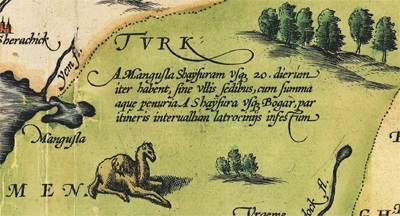 TVRK
Sherachick
Yem fl.
A Mangusla Shaysuram vsq, 20. dierum
iter habent, sine vllis sedibus, cum summa
aque penuria. A Shaysura vsq, Bogar, par
itineris interuallum latrocinijs infestum
Mangusla
MEN